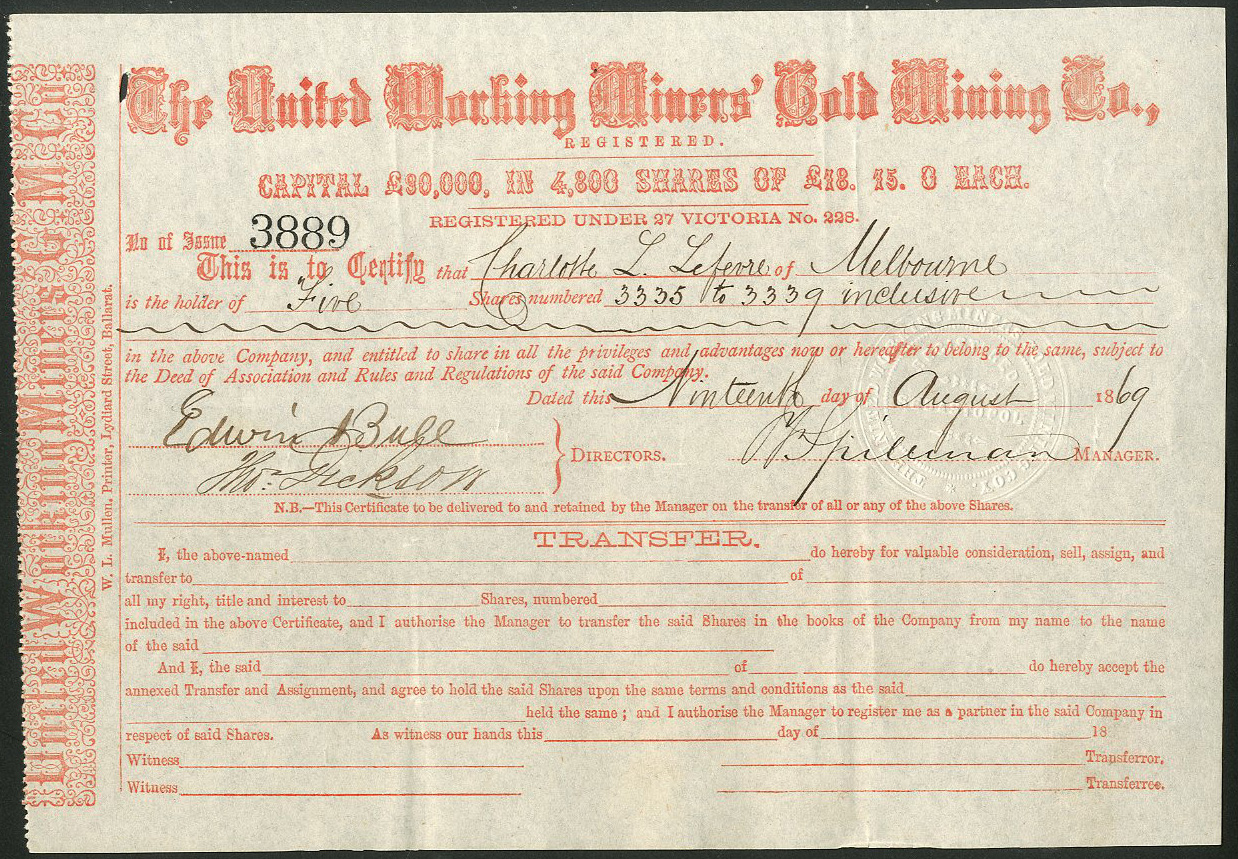 The United Working Miners' Gold Mining Co.,
REGISTERED.
CAPITAL £90,000, IN 4,800 SHARES OF £18. 15. 0 EACH.
REGISTERED UNDER 27 VICTORIA No. 228.
No of Issue 3889
This is to Certify that Charlotte L. Lefevre of Melbourne
is the holder of Five Shares numbered 3335 to 3339 inclusive
in the above Company, and entitled to share in all the privileges and advantages now or hereafter to belong to the same, subject to
the Deed of Association and Rules and Regulations of the said Company.
Dated this Ninteenth day of August 1869
Edwin Bull
Thos. Dickson
DIRECTORS.
Spileman MANAGER.
N.B.—This Certificate to be delivered to and retained by the Manager on the transfer of all or any of the above Shares.
TRANSFER.
I, the above-named do hereby for valuable consideration, sell, assign, and
transfer to of
all my right, title and interest to Shares, numbered
included in the above Certificate, and I authorise the Manager to transfer the said Shares in the books of the Company from my name to the name
of the said
And I, the said of do hereby accept the
annexed Transfer and Assignment, and agree to hold the said Shares upon the same terms and conditions as the said
held the same ; and I authorise the Manager to register me as a partner in the said Company in
respect of said Shares. As witness our hands this day of 18
Witness Transferror.
Witness Transferree.
United Working Miners G M Co
W. L. Mullen, Printer, Lydiard Street, Ballarat.